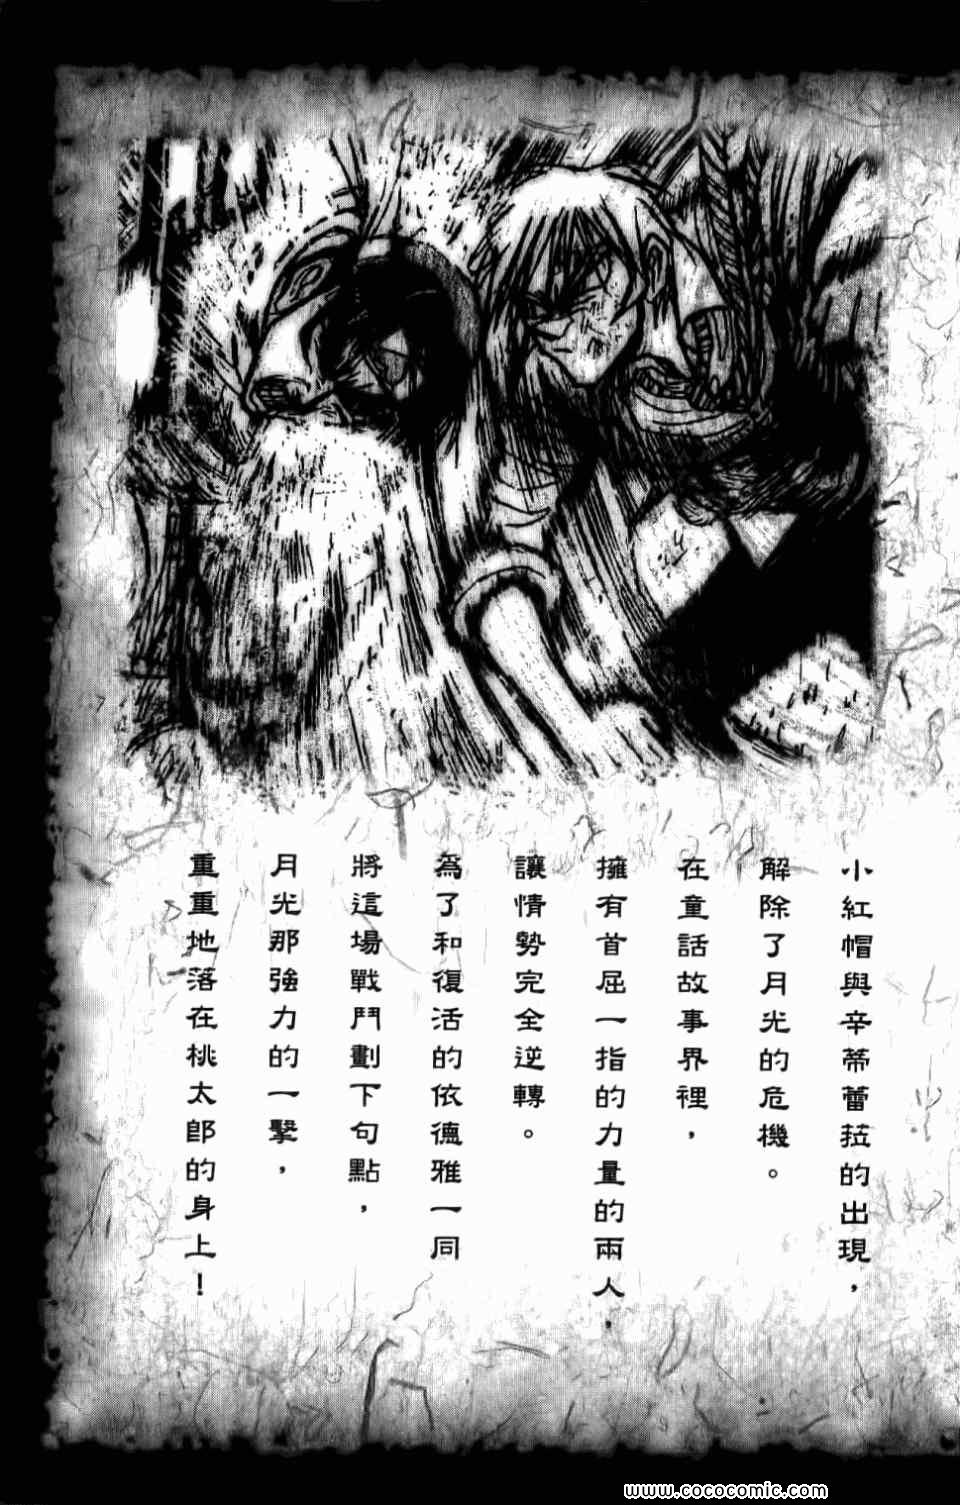 小紅帽與辛蒂蕾菈的出現，
解除了月光的危機。
在童話故事界裡，
擁有首屈一指的力量的兩人，
讓情勢完全逆轉。
為了和復活的依德雅一同
將這場戰鬥劃下句點，
月光那強力的一擊，
重重地落在桃太郎的身上！
www.cococomic.com